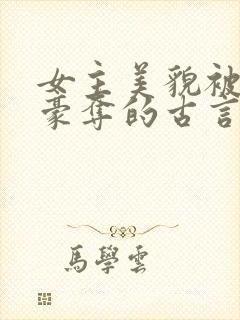 女主美貌被
豪奪的古言
馬學雲